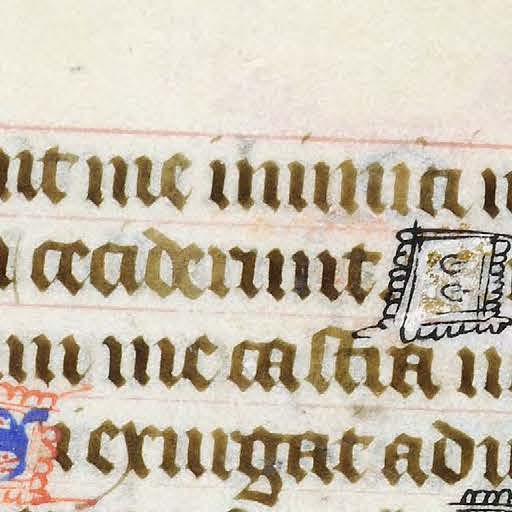 nt me inimici
ceciderunt
um me castra n
Si exurgat adu